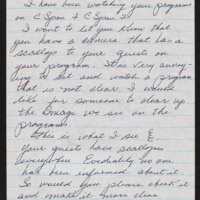 I have been watching your programs
on C Span & C Span 2.
I want to let you know that
you have a camera that has a
scallop to your guests on
your program. It is very annoy-
ing to sit and watch a program
that is not clear. I would
like for someone to clear up
the Image we see on the
program.
This is what I see
Your guests have scallops
everywhere. Evidentily no one
has been informed about it.
So would you please check it
and make it more clear